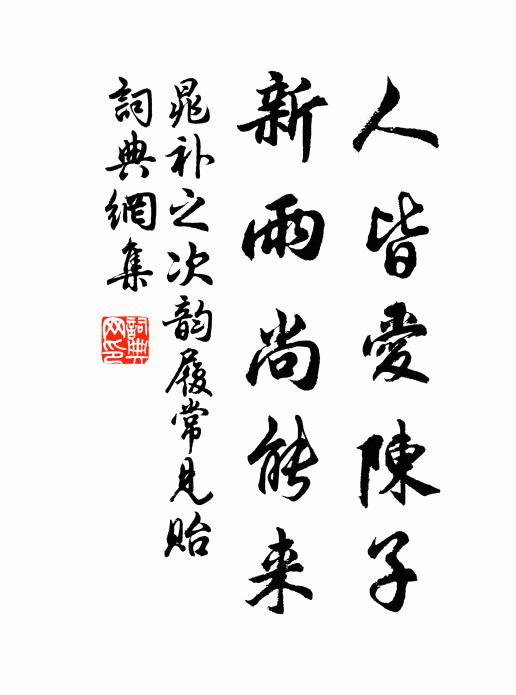 人皆愛陳子
新雨尚能来
晁补之次韵履常見貽
詞典網集
詞典
网印